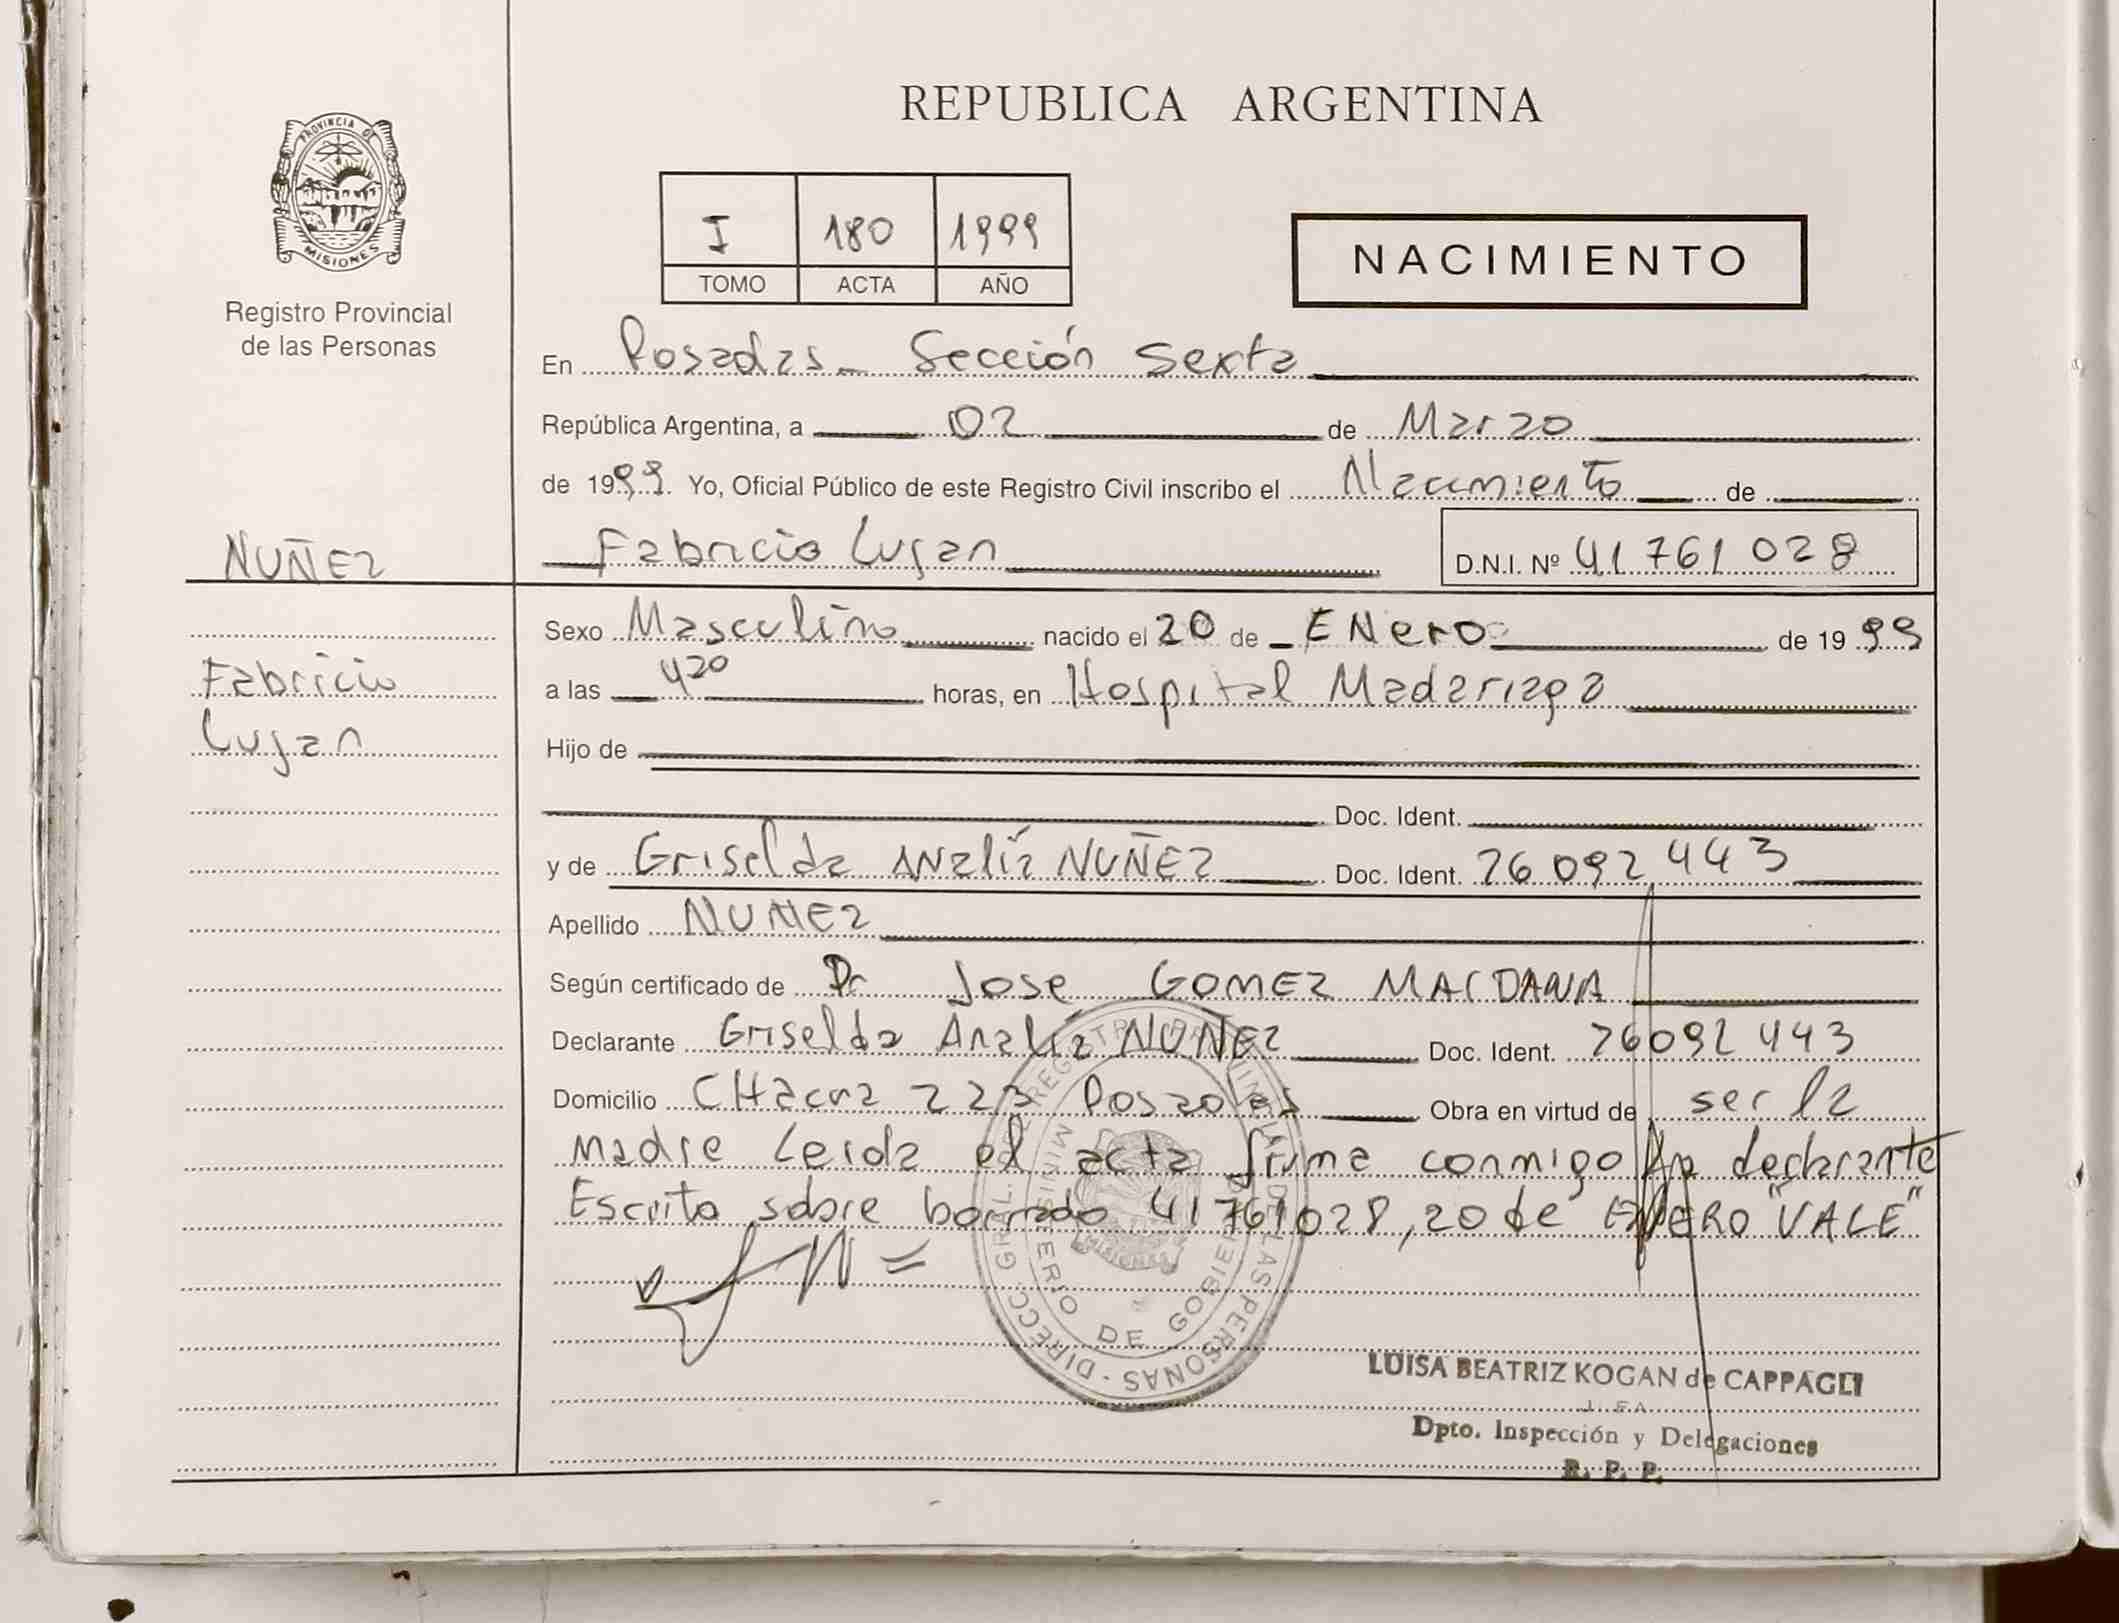 REPUBLICA ARGENTINA
PROVINCIA DE MISIONES
Registro Provincial
de las Personas
I 180 1999
TOMO ACTA AÑO
NACIMIENTO
En Posadas - Sección Sexta
República Argentina, a 02 de Marzo
de 1999. Yo, Oficial Público de este Registro Civil inscribo el Nacimiento de
Fabricio Lujan D.N.I. Nº 41 761 028
NUÑEZ
Fabricio
Lujan
Sexo Masculino nacido el 20 de ENero de 1999
a las 420 horas, en Hospital Madariaga
Hijo de
Doc. Ident.
y de Griselda ANalía NUÑEZ Doc. Ident. 26 092 443
Apellido NUÑEZ
Según certificado de Dr JOSE GOMEZ
Declarante Griselda Analía NUÑEZ Doc. Ident. 26092 443
Domicilio CHacra 223 Posadas Obra en virtud de ser la
Madre Leida el acta firma conmigo la declarante
Escrito sobre borrado 41761028, 20 de ENERO "VALE"
DIRECC. GRAL. DE REGISTRO PROVINCIAL DE LAS PERSONAS
MINISTERIO DE GOBIERNO
LUISA BEATRIZ KOGAN de CAPPAGLI
Dpto. Inspección y Delegaciones
R. P. P.